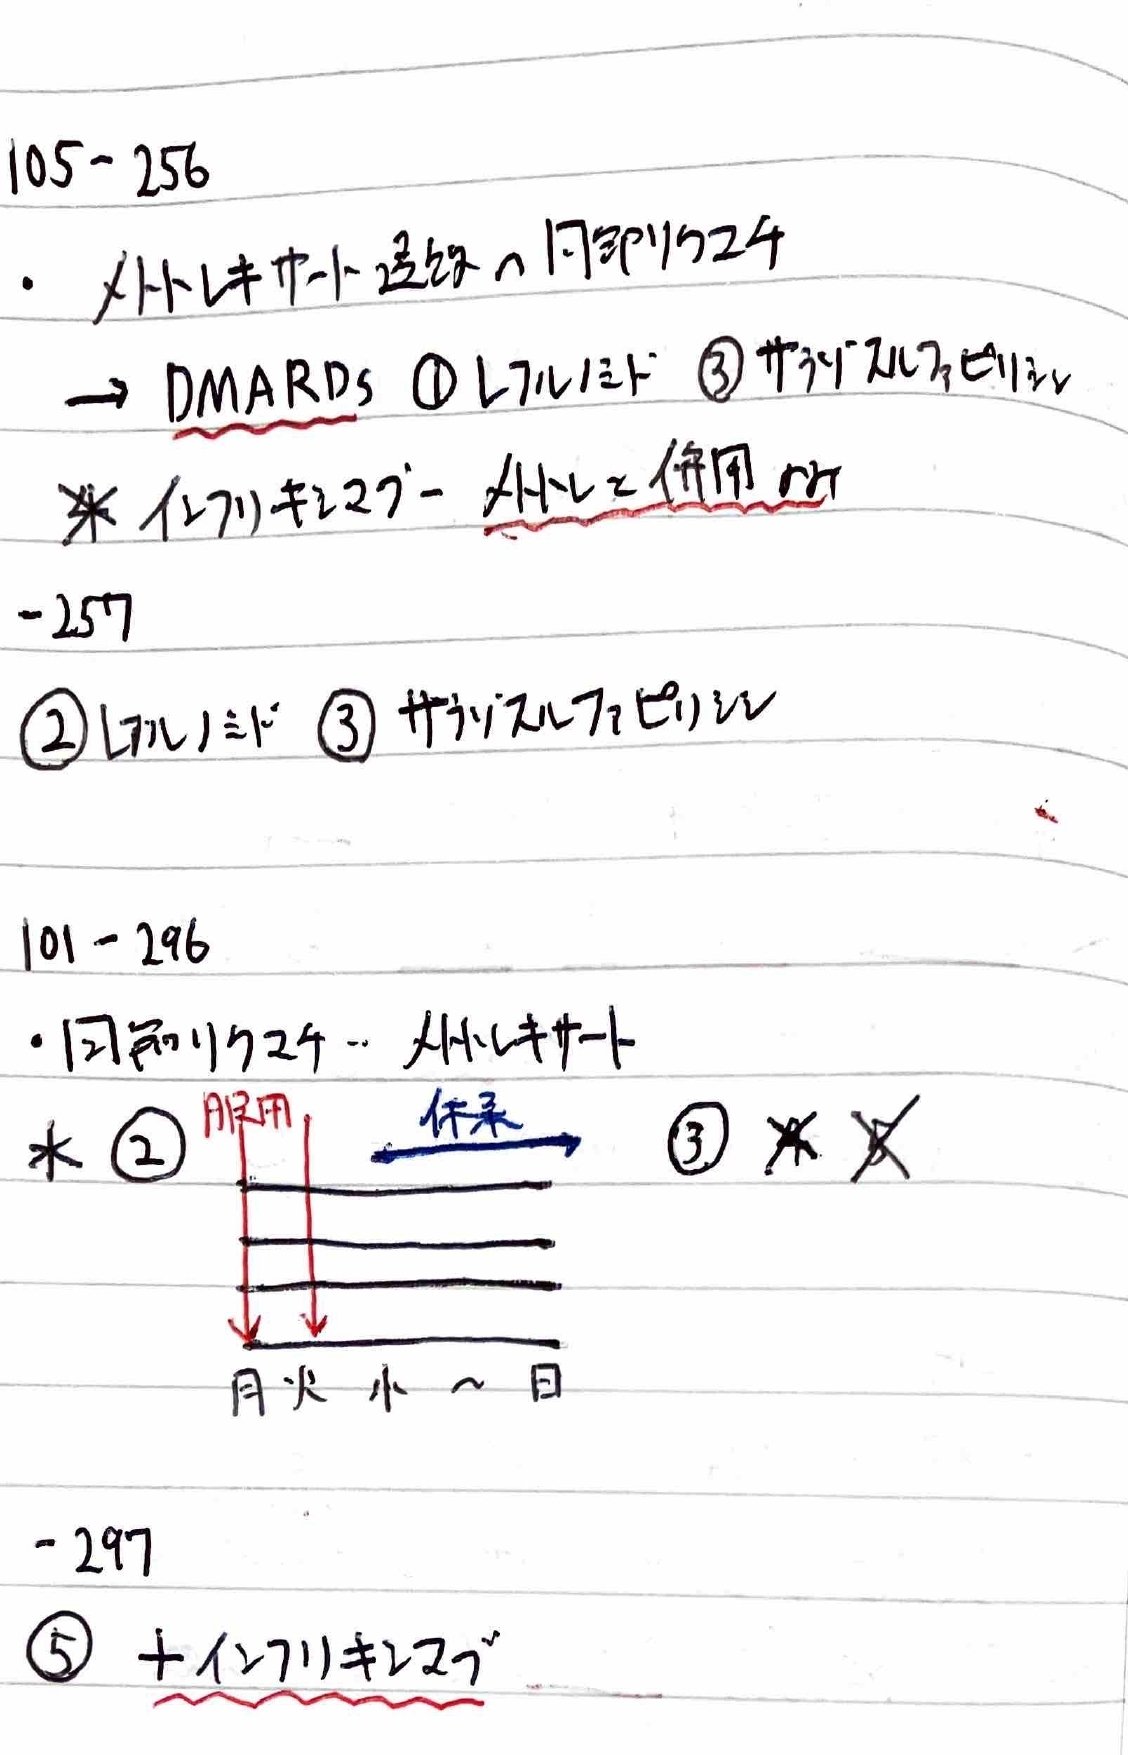 105-256
・メトトレキサート の関節リウマチ
→ DMARDs ① レフルノミド ③ サラゾスルファピリジン
※ インフリキシマブ - メトトレと併用
-257
② レフルノミド ③ サラゾスルファピリジン
101-296
・関節リウマチ‥ メトトレキサート
服用 休薬
* ② ③
月 火 水 ~ 日
-297
⑤ +インフリキシマブ